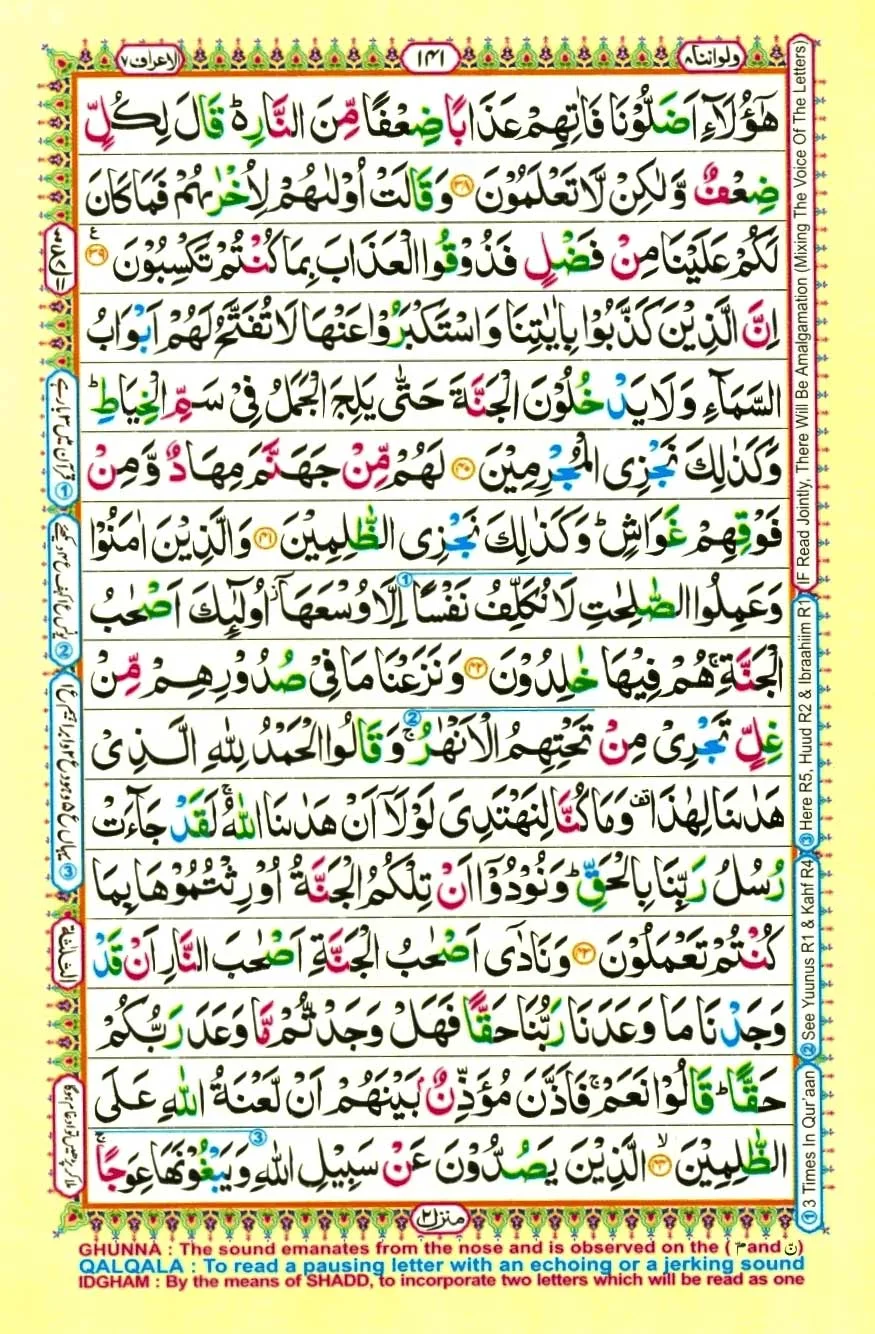 ولواننا ٨
١٤١
الاعراف ٧
هٰٓؤُلَآءِ اَضَلُّوۡنَا فَاٰتِهِمۡ عَذَابًا ضِعۡفًا مِّنَ النَّارِ ؕ۬ قَالَ لِكُلٍّ
ضِعۡفٌ وَّلٰكِنۡ لَّا تَعۡلَمُوۡنَ ﴿۳۸﴾ وَقَالَتۡ اُوۡلٰٮهُمۡ لِاُخۡرٰٮهُمۡ فَمَا كَانَ
لَكُمۡ عَلَيۡنَا مِنۡ فَضۡلٍ فَذُوۡقُوا الۡعَذَابَ بِمَا كُنۡتُمۡ تَكۡسِبُوۡنَ ﴿۳۹﴾
اِنَّ الَّذِيۡنَ كَذَّبُوۡا بِاٰيٰتِنَا وَاسۡتَكۡبَرُوۡا عَنۡهَا لَا تُفَتَّحُ لَهُمۡ اَبۡوَابُ
السَّمَآءِ وَلَا يَدۡخُلُوۡنَ الۡجَنَّةَ حَتّٰى يَلِجَ الۡجَمَلُ فِىۡ سَمِّ الۡخِيَاطِ ؕ
وَكَذٰلِكَ نَجۡزِى الۡمُجۡرِمِيۡنَ ﴿۴۰﴾ لَهُمۡ مِّنۡ جَهَنَّمَ مِهَادٌ وَّمِنۡ
فَوۡقِهِمۡ غَوَاشٍ ؕ وَكَذٰلِكَ نَجۡزِى الظّٰلِمِيۡنَ ﴿۴۱﴾ وَالَّذِيۡنَ اٰمَنُوۡا
وَعَمِلُوا الصّٰلِحٰتِ لَا نُكَلِّفُ نَفۡسًا اِلَّا وُسۡعَهَاۤ ز اُولٰٓٮِٕكَ اَصۡحٰبُ
الۡجَنَّةِ ۚ هُمۡ فِيۡهَا خٰلِدُوۡنَ ﴿۴۲﴾ وَنَزَعۡنَا مَا فِىۡ صُدُوۡرِهِمۡ مِّنۡ
غِلٍّ تَجۡرِىۡ مِنۡ تَحۡتِهِمُ الۡاَنۡهٰرُ ۚ وَقَالُوا الۡحَمۡدُ لِلّٰهِ الَّذِىۡ
هَدٰٮنَا لِهٰذَا وَمَا كُنَّا لِنَهۡتَدِىَ لَوۡلَاۤ اَنۡ هَدٰٮنَا اللّٰهُ ۚ لَقَدۡ جَآءَتۡ
رُسُلُ رَبِّنَا بِالۡحَقِّ ؕ وَنُوۡدُوۡۤا اَنۡ تِلۡكُمُ الۡجَنَّةُ اُوۡرِثۡتُمُوۡهَا بِمَا
كُنۡتُمۡ تَعۡمَلُوۡنَ ﴿۴۳﴾ وَنَادٰٓى اَصۡحٰبُ الۡجَنَّةِ اَصۡحٰبَ النَّارِ اَنۡ قَدۡ
وَجَدۡنَا مَا وَعَدَنَا رَبُّنَا حَقًّا فَهَلۡ وَجَدْتُّمۡ مَّا وَعَدَ رَبُّكُمۡ
حَقًّا ؕ قَالُوۡا نَعَمۡ ۚ فَاَذَّنَ مُؤَذِّنٌۢ بَيۡنَهُمۡ اَنۡ لَّعۡنَةُ اللّٰهِ عَلَى
الظّٰلِمِيۡنَ ۙ ﴿۴۴﴾ الَّذِيۡنَ يَصُدُّوۡنَ عَنۡ سَبِيۡلِ اللّٰهِ وَيَبۡغُوۡنَهَا عِوَجًا ۚ
منزل ٢
① 3 Times In Qur'aan
② See Yuunus R1 & Kahf R4
③ Here R5, Huud R2 & Ibraahiim R1
IF Read Jointly, There Will Be Amalgamation (Mixing The Voice Of The Letters)
الثلثة
GHUNNA : The sound emanates from the nose and is observed on the ( م and ن )
QALQALA : To read a pausing letter with an echoing or a jerking sound
IDGHAM : By the means of SHADD, to incorporate two letters which will be read as one